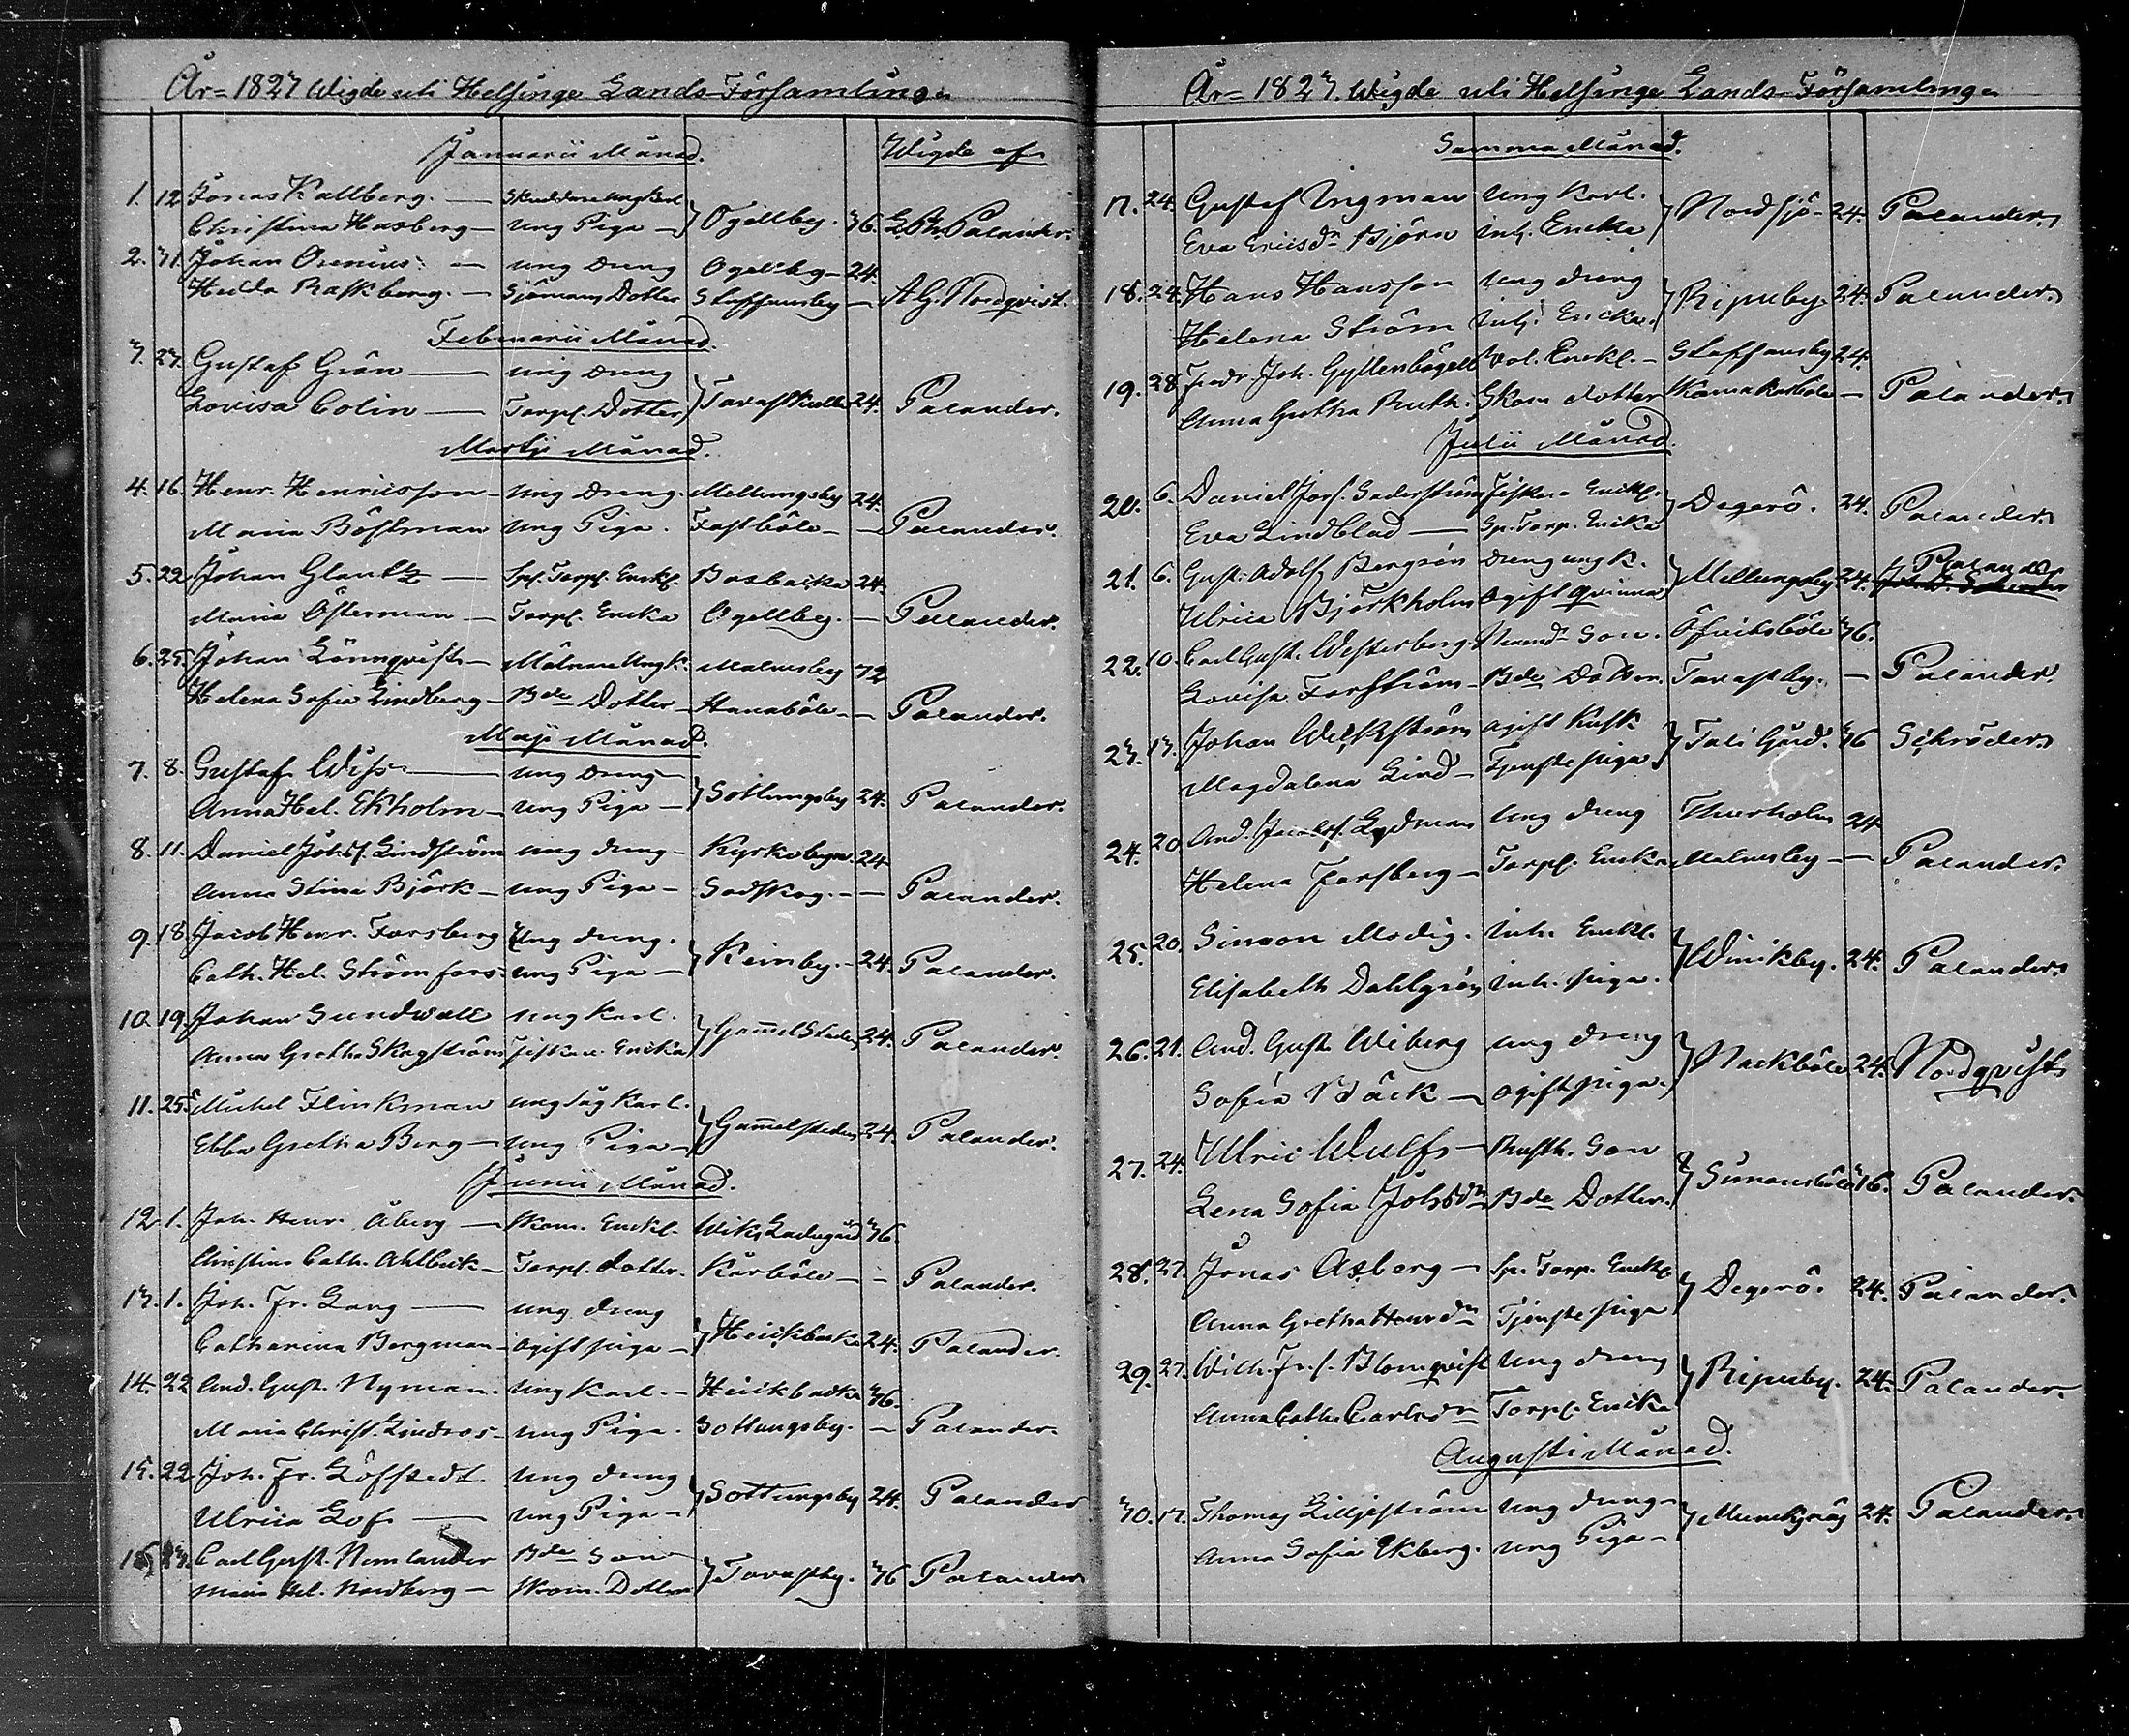 År 1823 Wigde uti Helsinge Lands Församling
Januarii Månad. Wigde af
1. 12 Jonas Kallberg. — Skräddare Ung Karl } Ogellby. 36. G. Palander.
Christina Hasberg — Ung Piga —
2. 31. Johan Orenius. — ung Dreng Ogellby — 24.
Hedda Raskberg. — Sjömans Dotter Staffansby — A G. Nordqvist.
Februarii Månad.
3. 23. Gustaf Grön — ung Dreng } Tavastkulla 24. Palander.
Lovisa Colin — Torp. Dotter
Martii Månad.
4. 16. Henr. Henricsson — Ung Dreng. Mellungsby 24.
Maria Böstman Ung Piga. Fastböle — — Palander.
5. 22. Johan Glantz — Torp. Enkl. Basbacka 24.
Maria Österman — Torp. Encka Ogellby. — Palander.
6. 25. Johan Lönnqvist — Målare Ung K. Malmsby 32
Helena Sofia Lindberg — Bde Dotter — Hanaböle — — Palander.
Maji Månad.
7. 8. Gustaf Wiss — ung Dreng } Sottungsby 24. Palander.
Anna Hel. Ekholm — Ung Piga —
8. 11. Daniel Johsf. Lindström ung dreng — Kyrkobyn. 24
Anna Stina Björk — ung Piga — Sodskog. — — Palander.
9. 18 Jacob Henr. Forsberg Ung dreng. } Reimby. — 24. Palander.
Cath. Hel. Strömfors — ung Piga —
10. 19. Johan Sundwall ung karl. } Gammelstaden 24. Palander.
Anna Gretha Skogström Fiskare Encka
11. 25. Michel Flinkman ung såg karl. } Gammelstaden 24. Palander.
Ebba Gretha Berg — Ung Piga —
Junii Månad.
12. 1. Joh. Henr. Åberg — Skom. Enckl. Wiks Ladugård 36.
Christina Cath. Ahlbeck — Torp. dotter. Kårböle — — Palander.
13. 1. Joh. Fr. Lang — ung dreng } Henricksbacka 24. Palander.
Catharina Bergman — ogift piga —
14. 22 And. Gust. Nyman. Ung karl. — Heickbacka 36.
Maria Christ. Lindros — ung Piga. Sottungsby. — Palander.
15. 22. Joh. Fr. Löfstedt ung dreng } Sottungsby 24. Palander
Ulrica Lof — ung Piga —
16. Carl Gust. Nemlander Bde Son } Tavastby. 36 Palander
Maria Hel. Nordberg — Skom. Dotter
År 1823. Wigde uti Helsinge Lands Församling
Samma Månad.
17. 24. Gustaf Ingman ung Karl. } Nordsjö — 24. Palander.
Eva Ericsdr Björn inh. Encka
18. 24. Hans Hansson ung dreng } Ripuby. 24. Palander.
Helena Ström inh. Encka.
19. 28 Fredr Joh. Gyllenbögell Vol. Enckl. — Staffansby 24.
Anna Gretha Ruth. Skom dotter — Palander.
Julii Månad.
20. 6. Daniel Söderström Fiskare Enckl. } Degerö. 24. Palander.
Eva Lindblad — Sp. Torp. Encka
21. 6. Gust. Adolf Bergrön dreng ung k. } Mellungsby 24. Palander
Ulrica Björkholm ogift qvinna
22. 10. Carl Gust. Westerberg. Son. 36.
Lovisa Forström — Bde Dotter. Tavastby. — Palander
23. 13. Johan Wessström ogift kusk } Tali Gård. 36 Schröder.
Magdalena Lind — Tjenste piga
24. 20 And. Jacobs. Lydman ung dreng Thurholm 24
Helena Forsberg — Torp. Encka Malmsby — Palander.
25. 20. Simon Modig. inh. Enckl. } Winikby. 24. Palander.
Elisabeth Dahlgrén inh. piga.
26. 21. And. Gust. Wiberg ung dreng } Nackböle 24. Nordqvist
Sofia Bäck — ogift piga.
27. 24. Ulric Wulff — Rusth. Son } Simonsböle 36. Palander.
Lena Sofia Johsdr Bde Dotter.
28. 27. Jonas Asberg — Sp. Torp. Enckl } Degerö. 24. Palander.
Anna Gretha Henrdr Tjenste piga
29. 27. Wilh. Fr. s. Blomqvist ung dreng } Ripuby. 24. Palander.
Anna Cath. Carlsdr Torp. Encka
Augusti Månad.
30. 17. Thomas Lilljeström ung dreng — } Munksnäs 24. Palander.
Anna Sofia Ekberg. ung Piga —